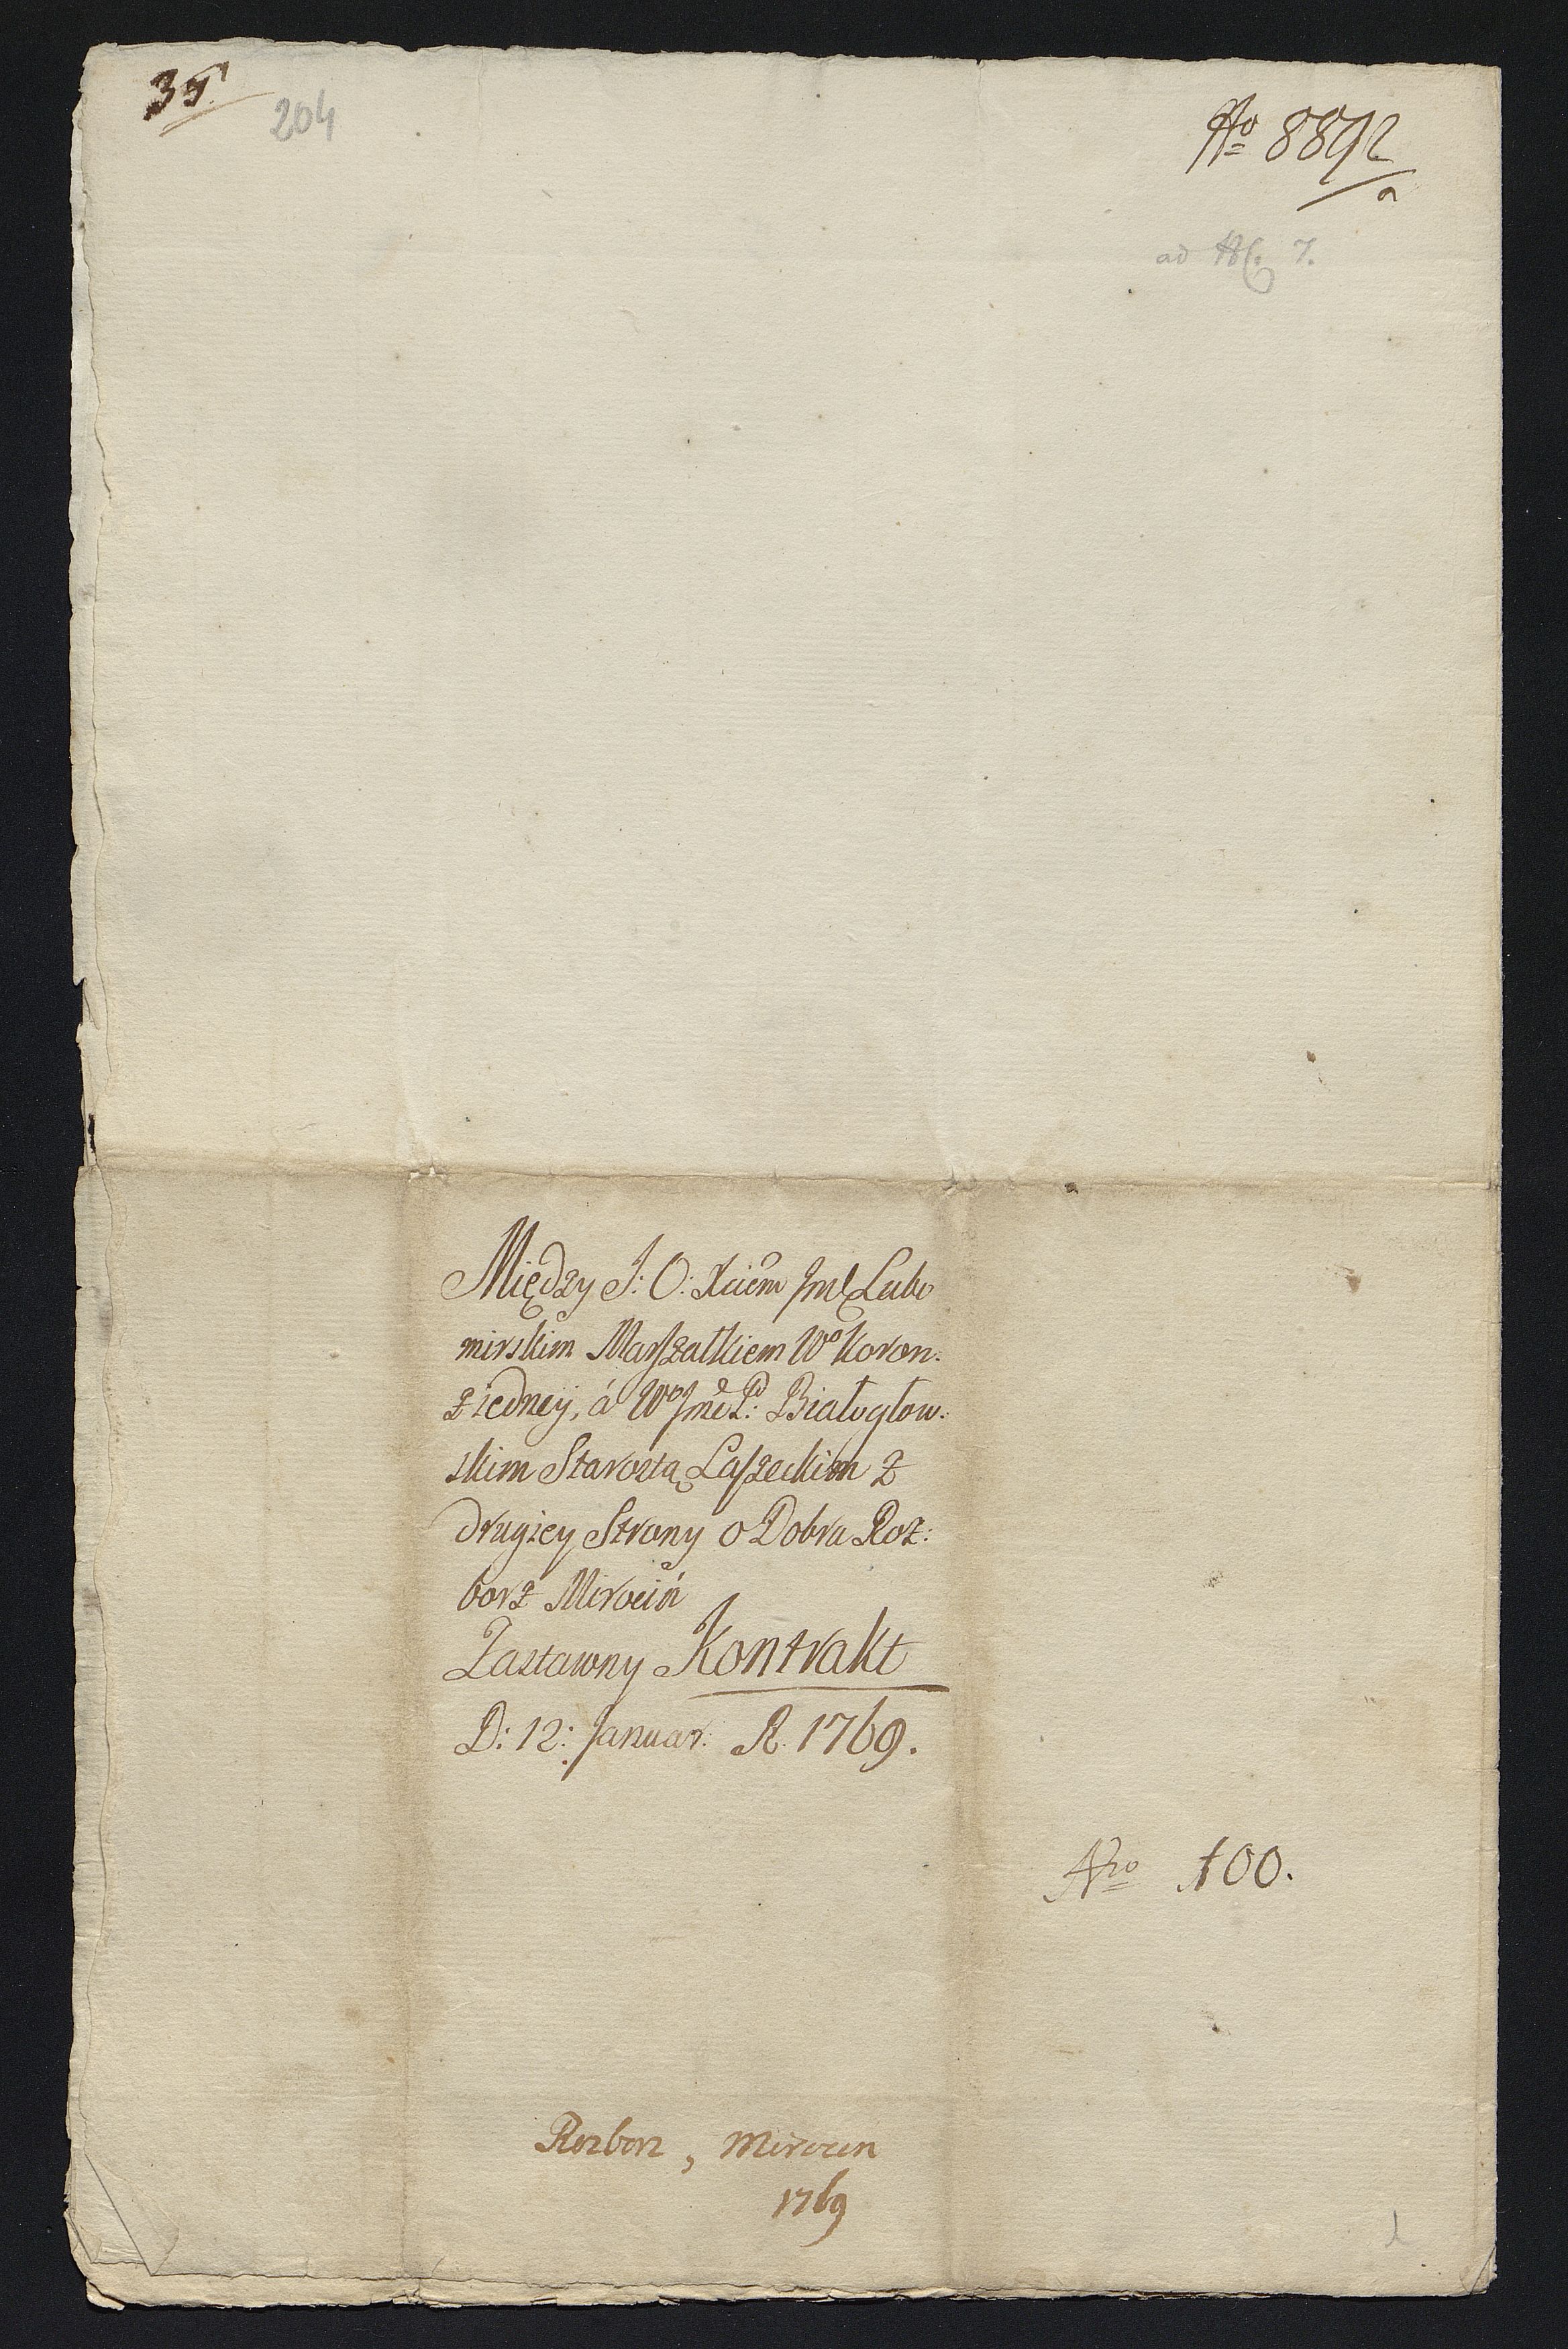 35.
204
No 8892
a
ad 7.
Między J: O: Xciem Jmć Lubo
mirskim Marszałkiem Wo Koron:
z iedney, á Wo Jmć P: Białogłow:
skim Starostą Laszeckim z
drugiey Strony o Dobra Roz:
borz Mirociń
Zastawny Kontrakt
D: 12: Januar: R. 1769.
Nro 100.
Rozborz, Mirocin
1769
1